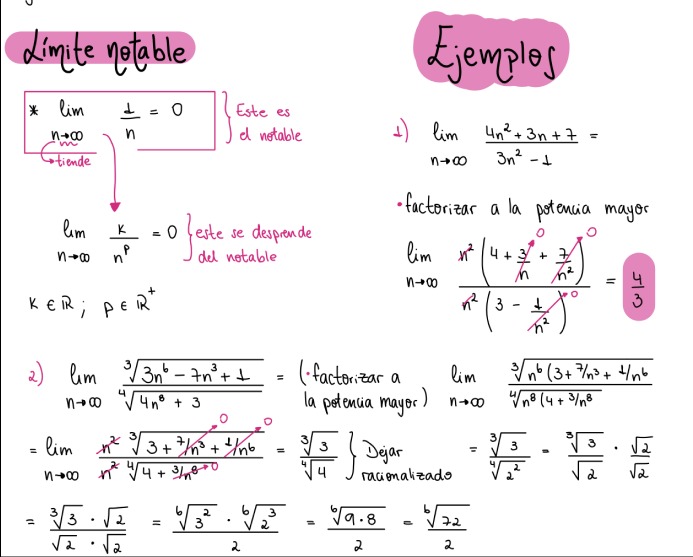 Límite notable
Ejemplos
* lim n→∞ 1/n = 0 } Este es el notable
↳ tiende
lim n→∞ k/n^p = 0 } este se desprende del notable
k ∈ ℝ ; p ∈ ℝ⁺
1) lim n→∞ (4n² + 3n + 7)/(3n² - 1) =
• factorizar a la potencia mayor
lim n→∞ n²(4 + 3/n + 7/n²)/n²(3 - 1/n²) = 4/3
0 0
0
2) lim n→∞ ∛(3n⁶ - 7n³ + 1)/∜(4n⁸ + 3) = (• factorizar a la potencia mayor) lim n→∞ ∛(n⁶(3 + 7/n³ + 1/n⁶)/∜(n⁸(4 + 3/n⁸
= lim n→∞ n² ∛(3 + 7/n³ + 1/n⁶)/n² ∜(4 + 3/n⁸) = ∛3/∜4 } Dejar racionalizado = ∛3/∜2² = ∛3/√2 · √2/√2
0 0
0
= (∛3 · √2)/(√2 · √2) = (⁶√3² · ⁶√2³)/2 = ⁶√(9·8)/2 = ⁶√72/2